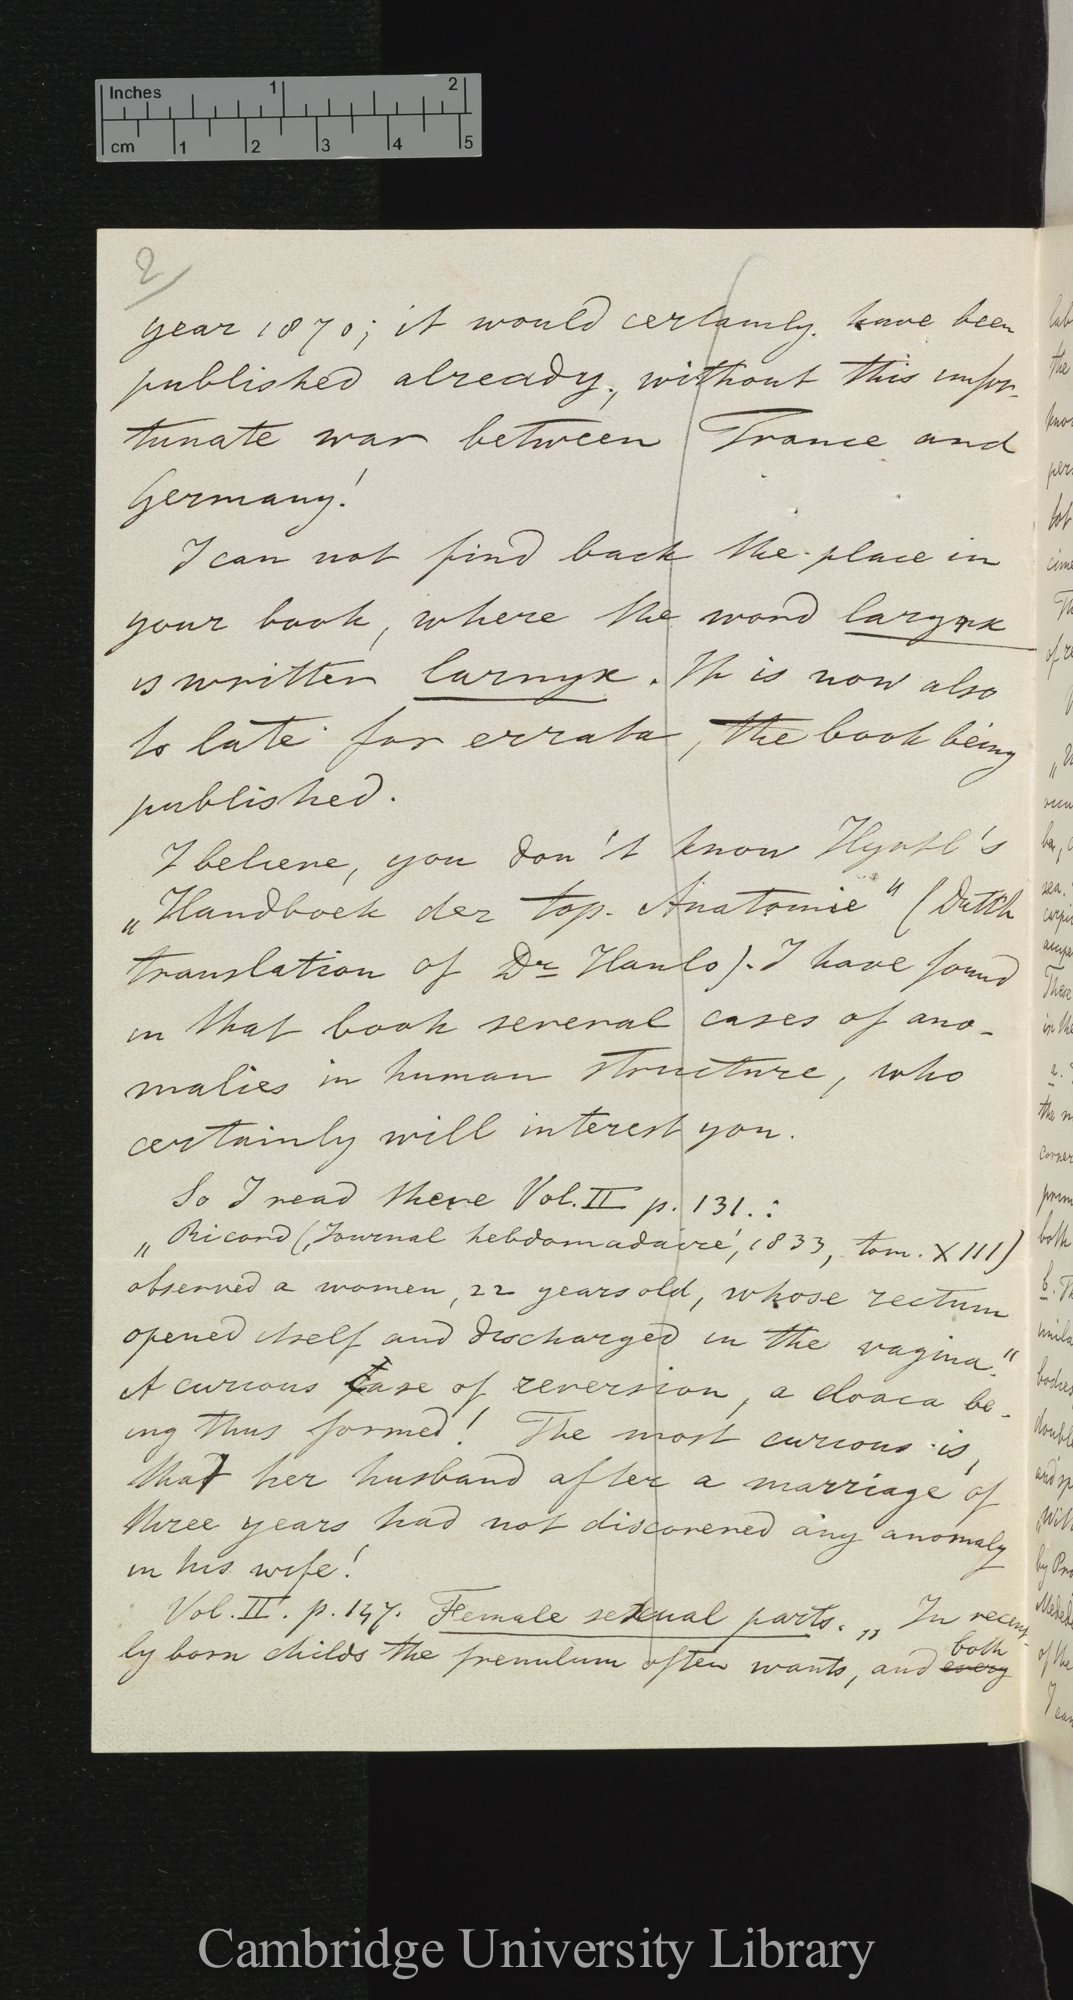 Inches 1 2
cm 1 2 3 4 5
2/
year 1870; it would certainly have been
published already, without this unfor-
tunate war between France and
Germany!
I can not find back the place in
your book, where the word larynx
is written larnyx. It is now also
to late for errata, the book being
published.
I believe, you don't know Hyrtl's
„Handboek der top. Anatomie" (Dutch
translation of Dr Hanlo). I have found
in that book several cases of ano-
malies in human structure, who
certainly will interest you.
So I read there Vol. II p. 131.:
„Ricord (‚Journal hebdomadaire', 1833, tom. XIII)
observed a women, 22 years old, whose rectum
opened itself and discharged in the vagina."
A curious case of reversion, a cloaca be-
ing thus formed! The most curious is,
that her husband after a marriage of
three years had not discovered any anomaly
in his wife!
Vol. II. p. 147. Female sexual parts. „In recent-
ly born childs the frenulum often wants, and every both
Cambridge University Library